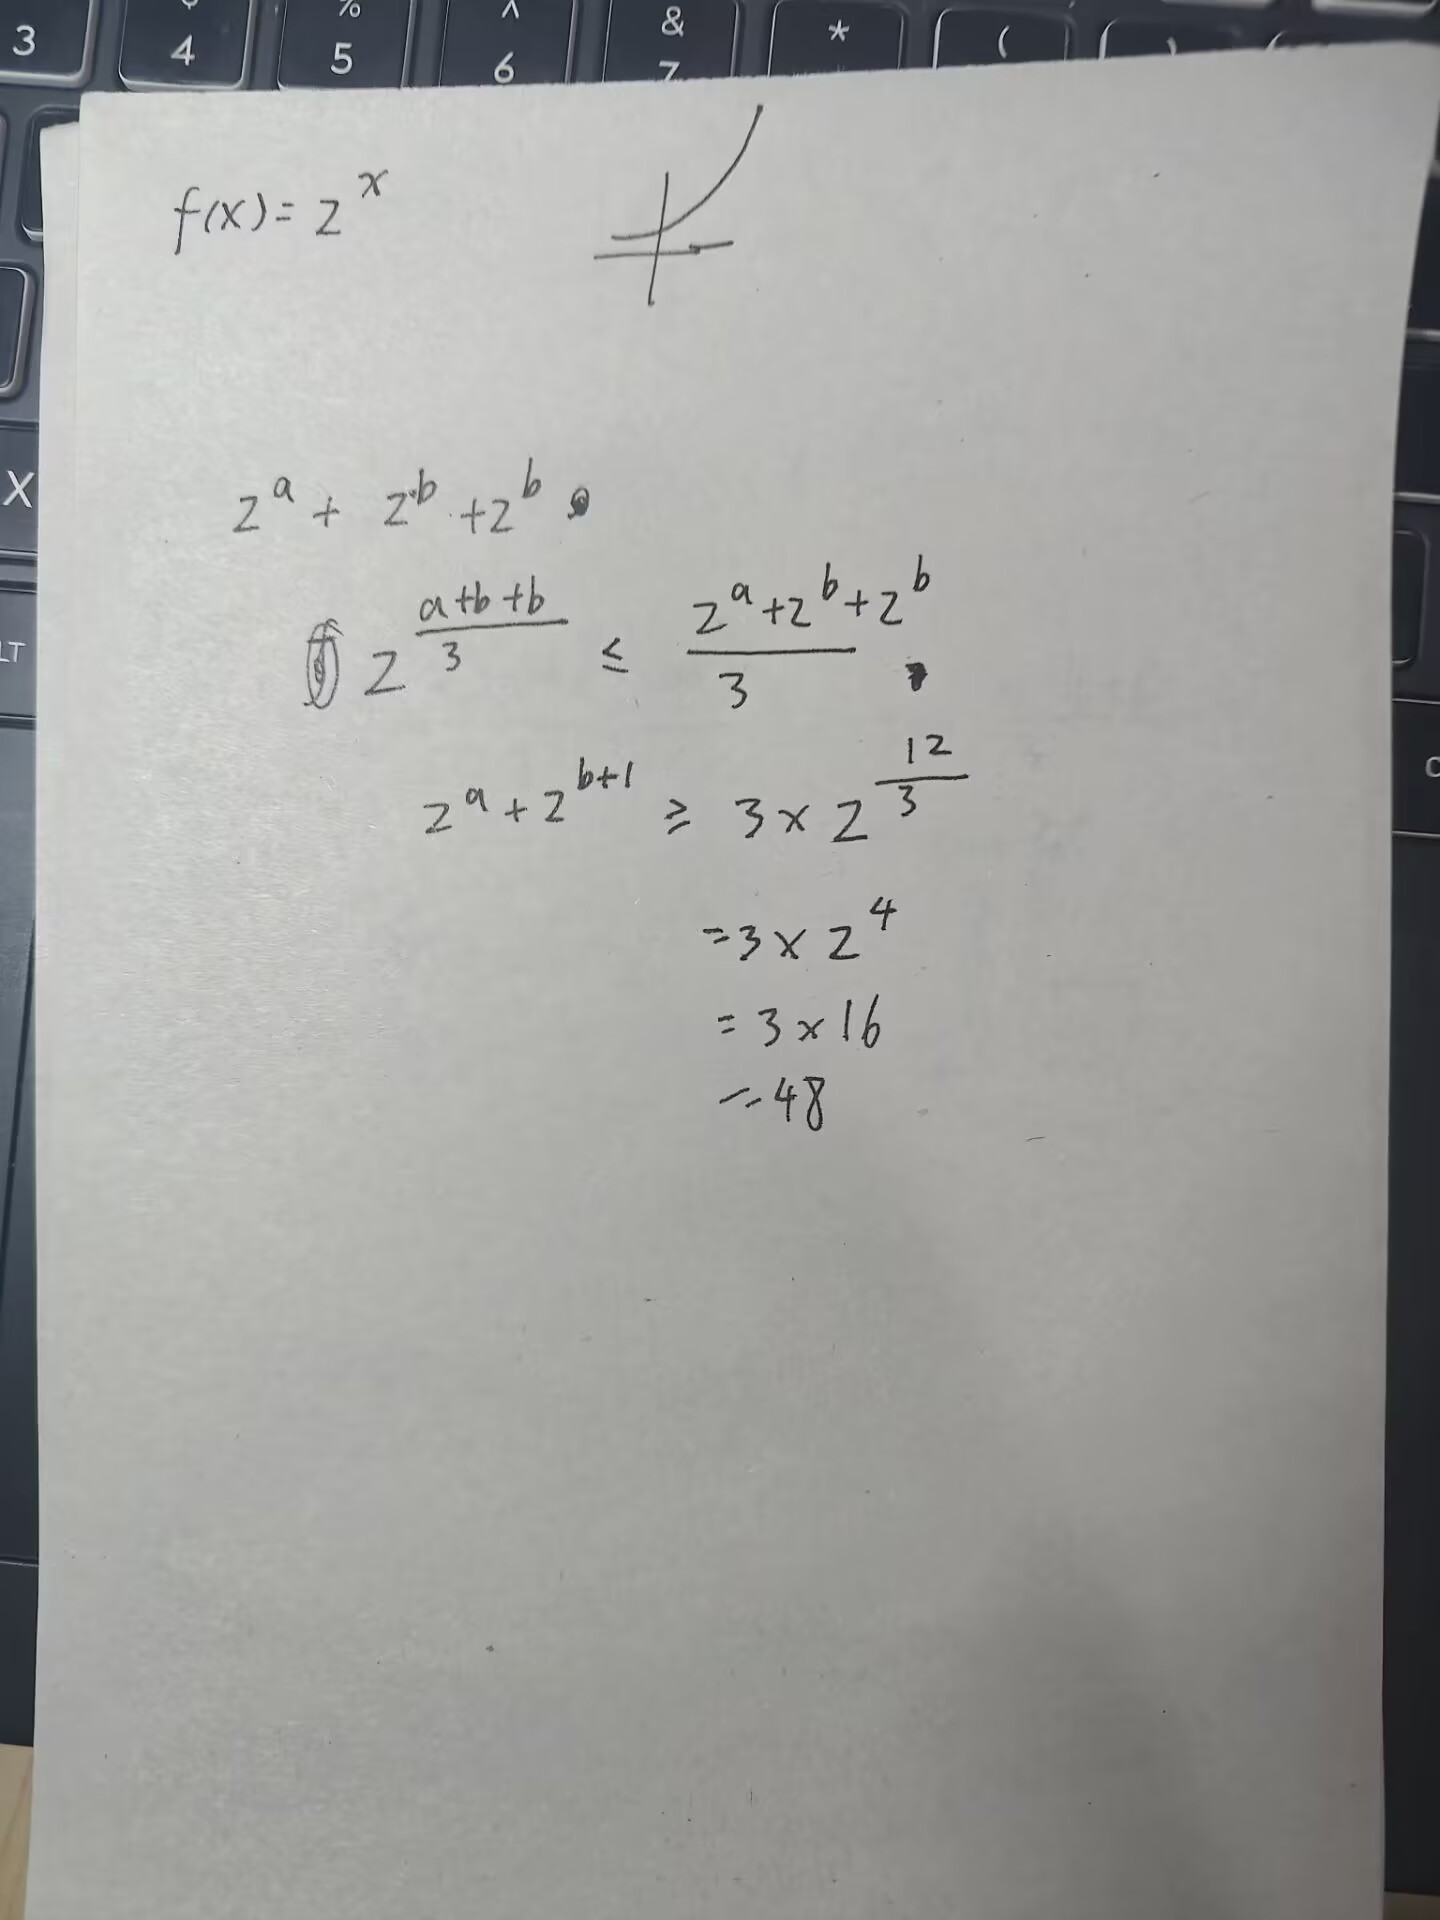 3 4 % 5 ^ 6 & 7 * ( )
f(x) = 2^x
X
2^a + 2^b + 2^b
LT
2^((a+b+b)/3) ≤ (2^a+2^b+2^b)/3
2^a + 2^(b+1) ≥ 3 × 2^(12/3)
= 3 × 2^4
= 3 × 16
= 48